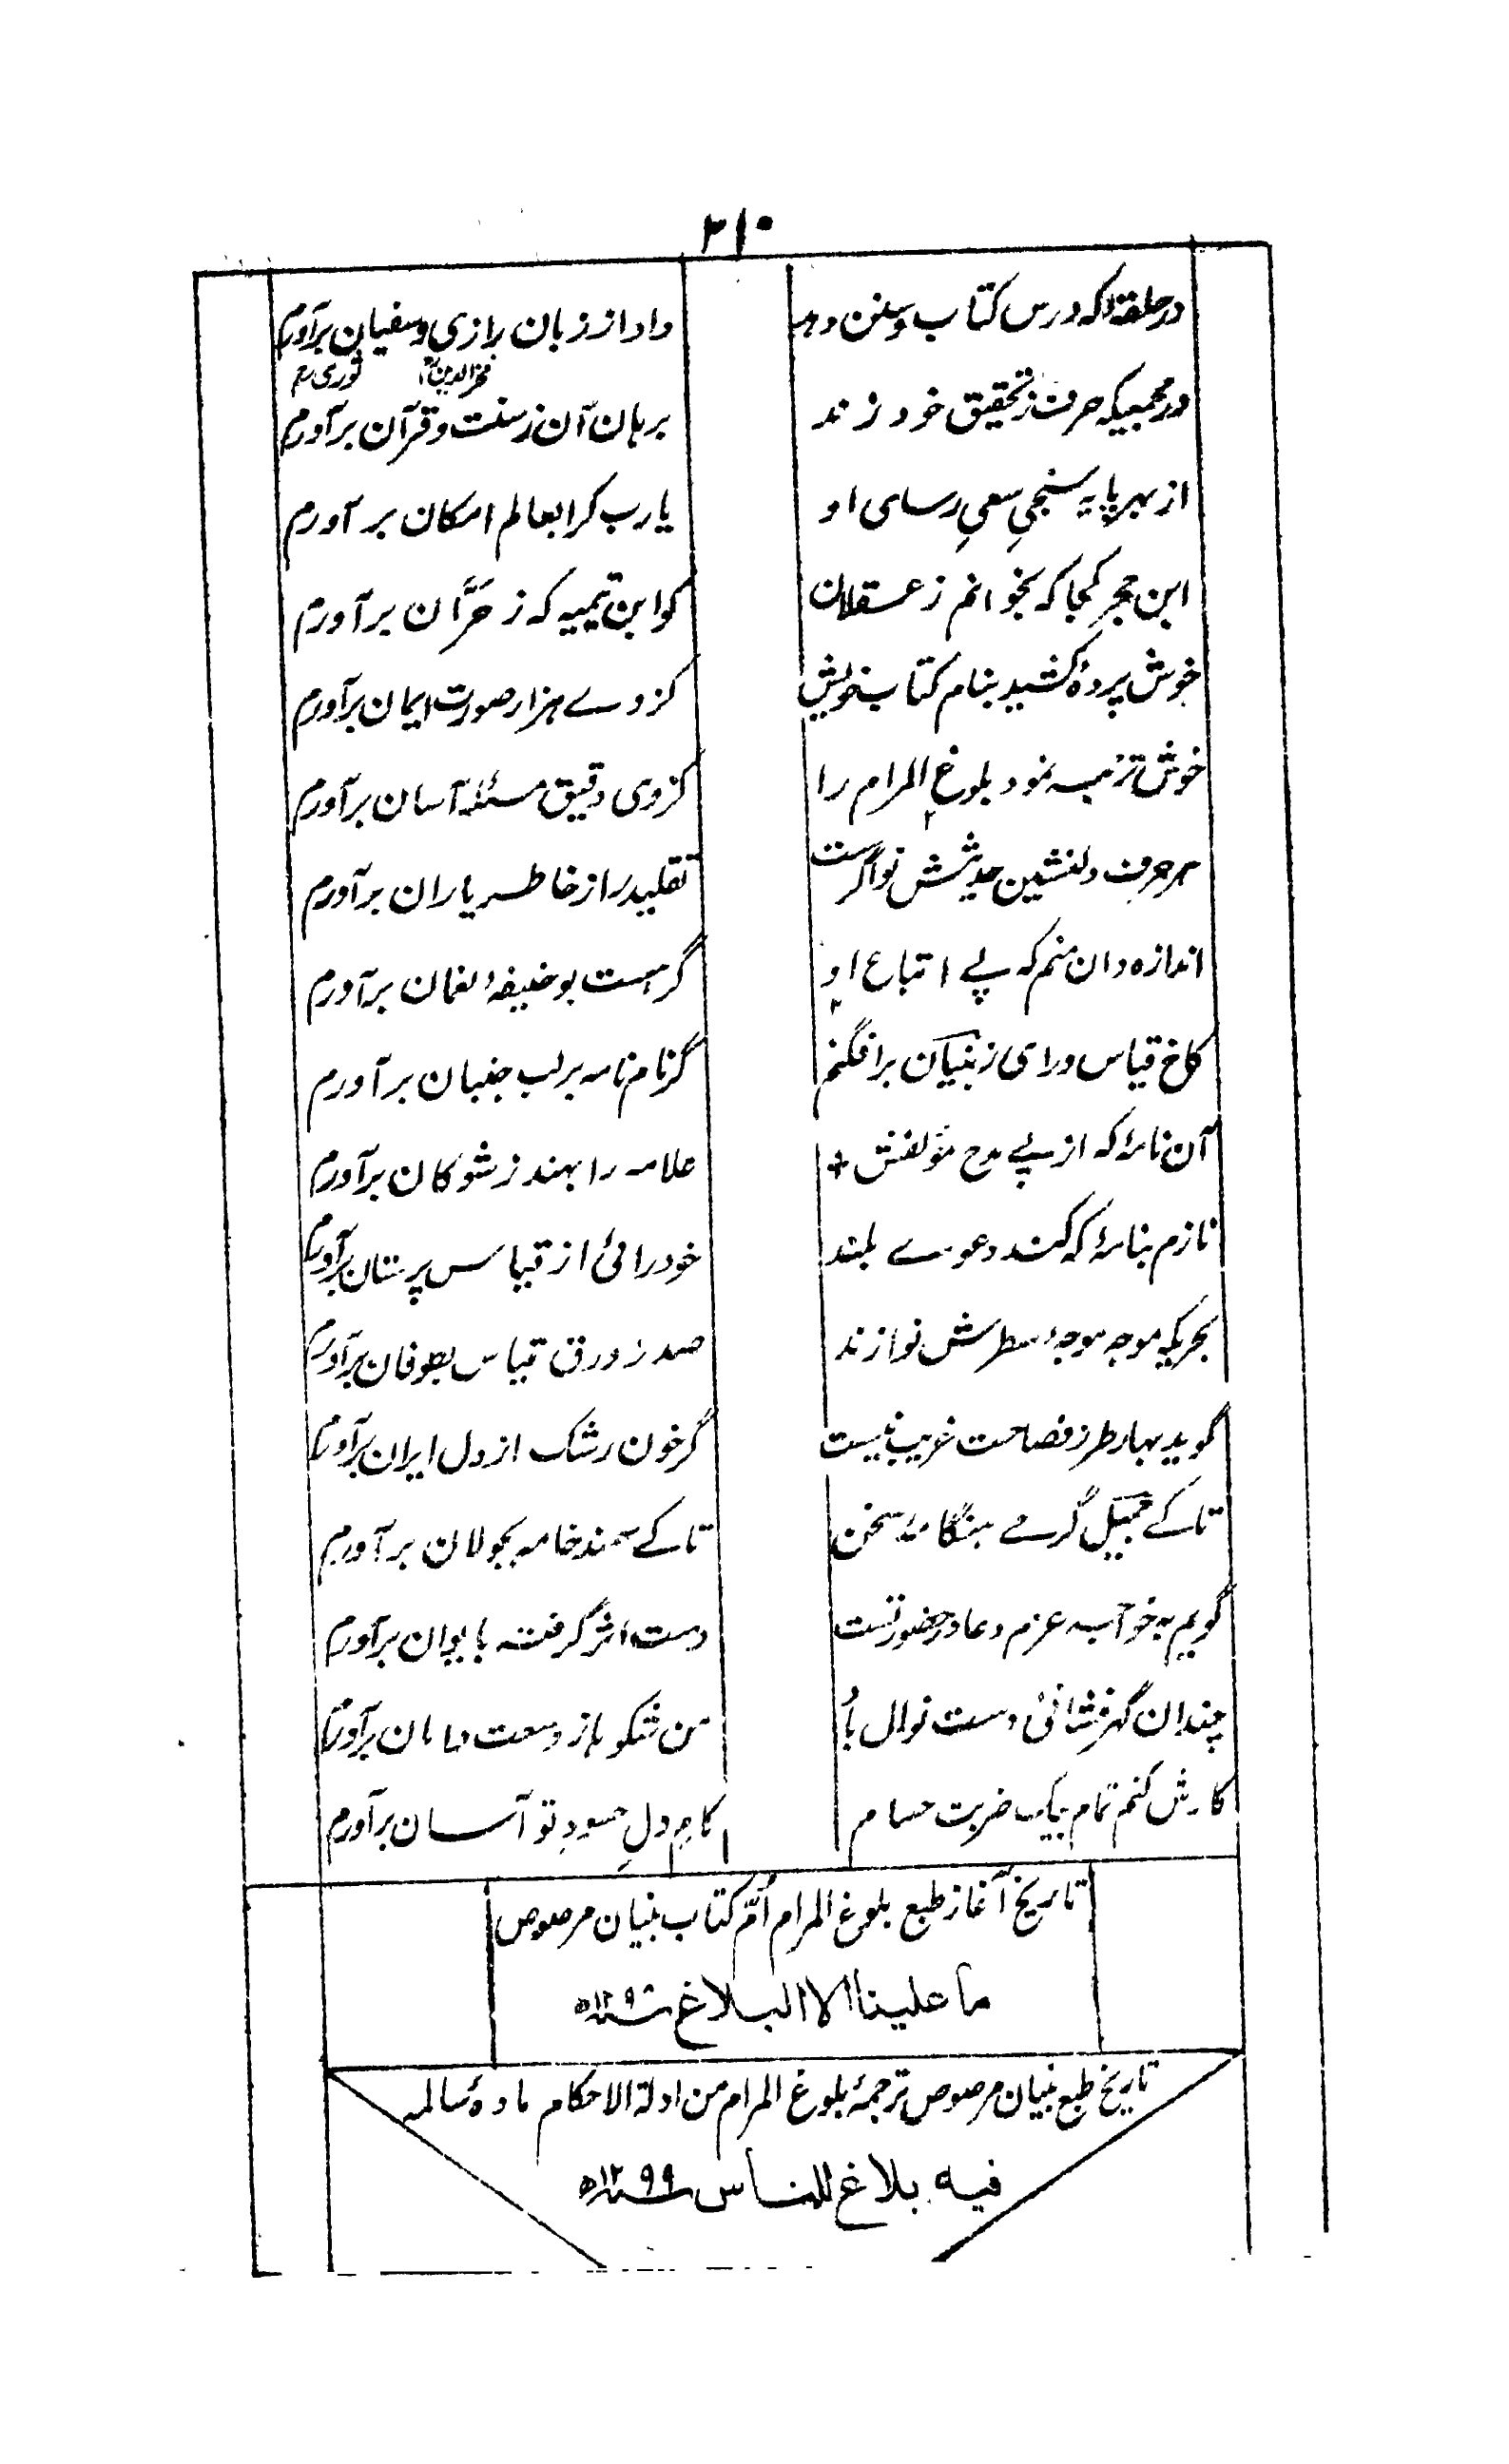 ۲۱۰
در حلقهٔ که درس کتاب و سنن دهد
داد از زبان رازی و سفیان برآورم
فخرالدین ثوری
در مجمعیکه حرف ز تحقیق خود زند
برهان آن ز سنت و قرآن برآورم
از بهر پایه سنجیِ سعیِ رسای او
یارب کرا بعالم امکان برآورم
ابن حجر کجا که بخوانم ز عسقلان
کو ابن تیمیه که ز حرَّان برآورم
خوش پردهٔ کشید بنام کتاب خویش
کز وے هزار صورت ایمان برآورم
خوش ترجمه نمود بلوغ المرام را
کز وی دقیق مسئله آسان برآورم
هر حرف دلنشین حدیثش نواگرست
تقلید را از خاطر یاران برآورم
اندازه دان منم که پے اتباع او
گر هست بوحنیفهٔ نعمان برآورم
کاخ قیاس و رای ز بنیان برافگنم
گر نام نامه بر لب جنبان برآورم
آن نامهٔ که از پے مدح مؤلفش +
علامه را بهند ز شوکان برآورم
نازم بنامهٔ که کند دعوے بلند
خودرائی از قیاس پرستان برآورم
بحریکه موجه موجهٔ سطرش نوا زند
صد زورق قیاس بطوفان برآورم
گوید بهار طرز فصاحت غریب نیست
گر خون رشک از دل ایران برآورم
تا کے جمیل گرمے هنگامهٔ سخن
تا کے سمند خامه بجولان برآورم
گویم به خواجه عزم دعا در حضور تست
دست اثر گرفته بایوان برآورم
چندان گهرفشانئ دست نوال باُ
من شکوه از وسعت دامان برآورم
کارش کنم تمام بیک ضربت حسام
کامِ دلِ حسودِ تو آسان برآورم
تاریخ آغاز طبع بلوغ المرام اُمّ کتاب بنیان مرصوص
ما علینا الا البلاغ سنه ۱۲۹۰ھ
تاریخ طبع بنیان مرصوص ترجمهٔ بلوغ المرام من ادلة الاحکام مادهٔ سالمه
فیه بلاغ للناس سنه ۱۲۹۹ھ